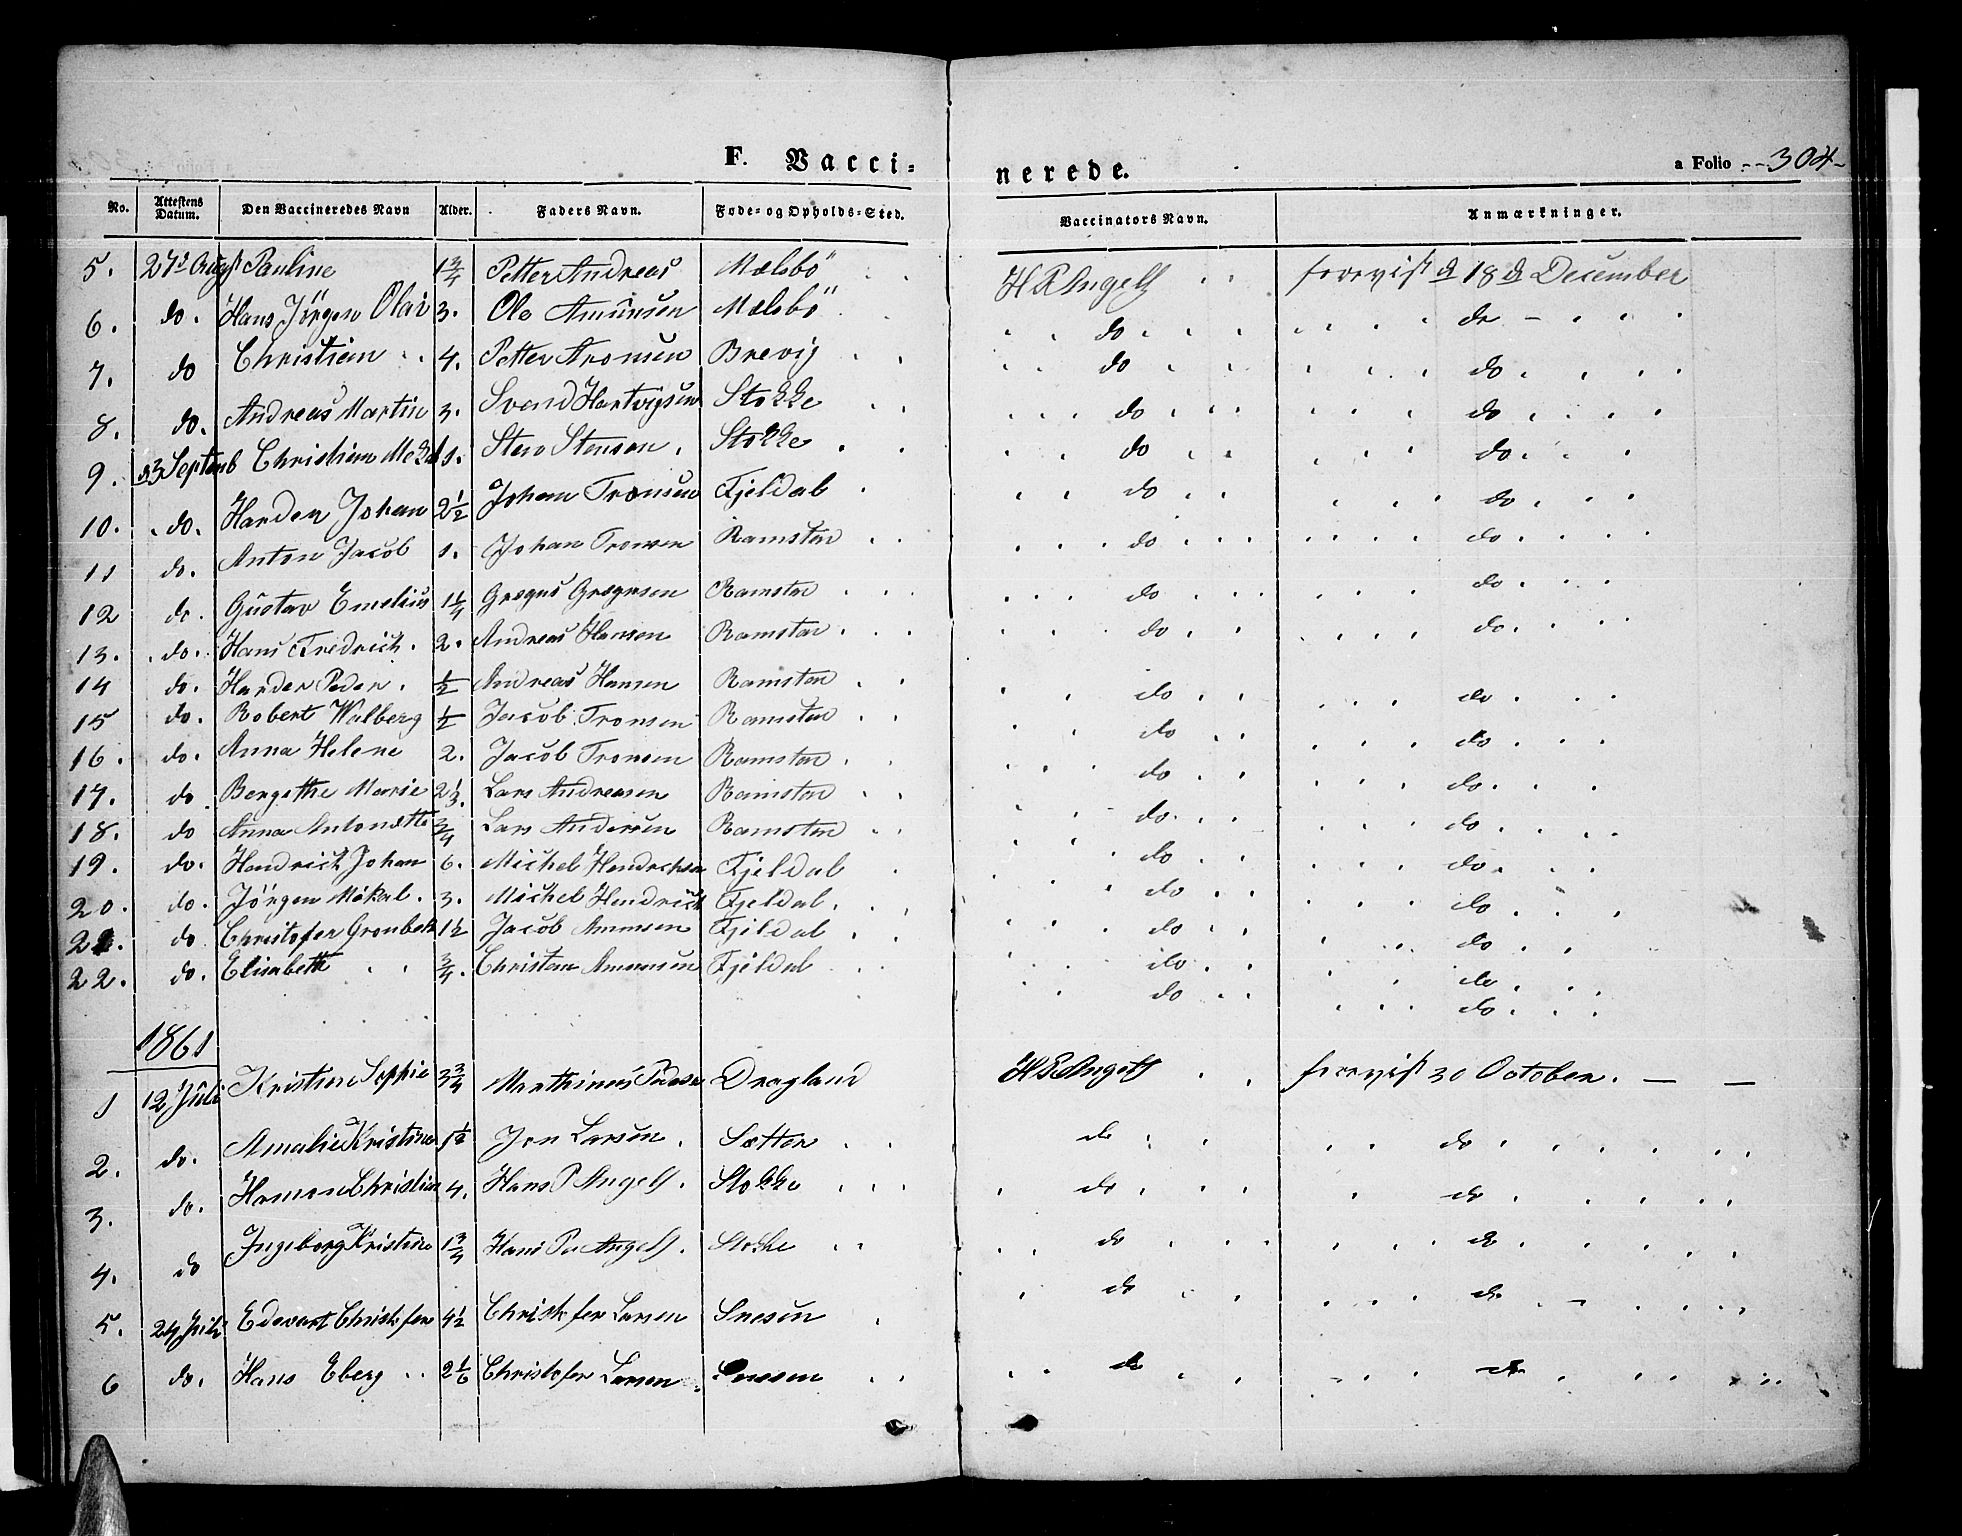 F. Vacci= nerede. a Folio 304
No. Attestens Datum. Den Vaccineredes Navn Alder. Faders Navn. Føde- og Opholds-Sted. Vaccinators Navn. Anmærkninger.
5. 27de Augst Pauline 1 3/4 Petter Andreas Mælsbö H P Angell forevist d 18 de December
6. do. Hans Jörgen Olai 3. Ole Amunsen Mælsbö do do
7. do Christian 4. Petter Aronsen Brevig do do
8. do. Andreas Martin 3. Svend Hartvigsen Stokke do do
9. 23 Septemb Christian 1. Sten Stensen Stokke do do
10. do. Harder Johan 2 1/2 Johan Tronsen Fjeldal do do
11 do. Anton Jacob 1. Johan Tronsen Ramstan do do
12 do. Gustav Emelius 1 1/4 Gregus Gregusen Ramstan do do
13. do. Hans Fredrich. 2. Andreas Hansen Ramstan do do
14 do. Harder Peder. 1/2 Andreas Hansen Ramstan do do
15 do. Robert Walberg 1/2 Jacob Tronsen Ramstan do do
16. do. Anna Helene 2. Jacob Tronsen Ramstan do do
17. do Bergethe Marie 2 1/3. Lars Andreasen Ramstan do do
18. do Anna Antonette 3/4 Lars Andersen Ramstan do do
19. do. Hendrich Johan 6. Michel Hendrichsen Fjeldal do do
20. do. Jörgen Mikal. 3. Michel Hendrich Fjeldal. do do
21. do Christofer Gronbek 1 1/2 Jacob Amunsen Fjeldal do do
22. do. Elisabeth 3/4. Christan Amunsen Fjeldal do do
do do
1861
1 12 Juli Kristine Sophie 3 3/4 Marthinus Pedersen Dragland H P Angell forevist 30 October. — —
2. do. Amalie Kristine 1 1/2 Jon Larsen. Sætter do do
3. do. Hamon Christian 4. Hans P Angell. Stokke do do
4. do Ingeborg Kristine 1 3/4 Hans Pe Angell. Stokke do do
5. 24 Juli Edevart Christofer 4 1/2 Christofer Larsen Snesen do do
6 do. Hans Eberg 2 1/6 Christofer Larsen Snesen do do